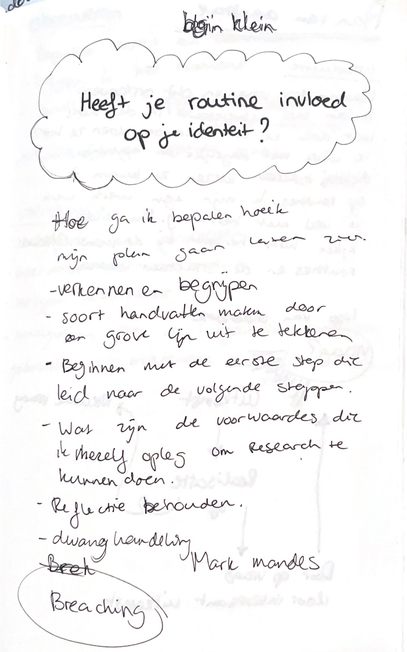 begin klein
Heeft je routine invloed
op je identeit?
Hoe ga ik bepalen hoe ik
mijn plan gaan zien.
-verkennen en begrijpen
- soort handvatten maken door
een grove lijn uit te tekkenen
- Beginnen met de eerste step die
leid naar de volgende steppen.
- Wat zijn de voorwaardes die
ik mezelf opleg om Research te
kunnen doen.
- Reflectie behouden.
- dwanghandeling
Mark mandes
Breaching